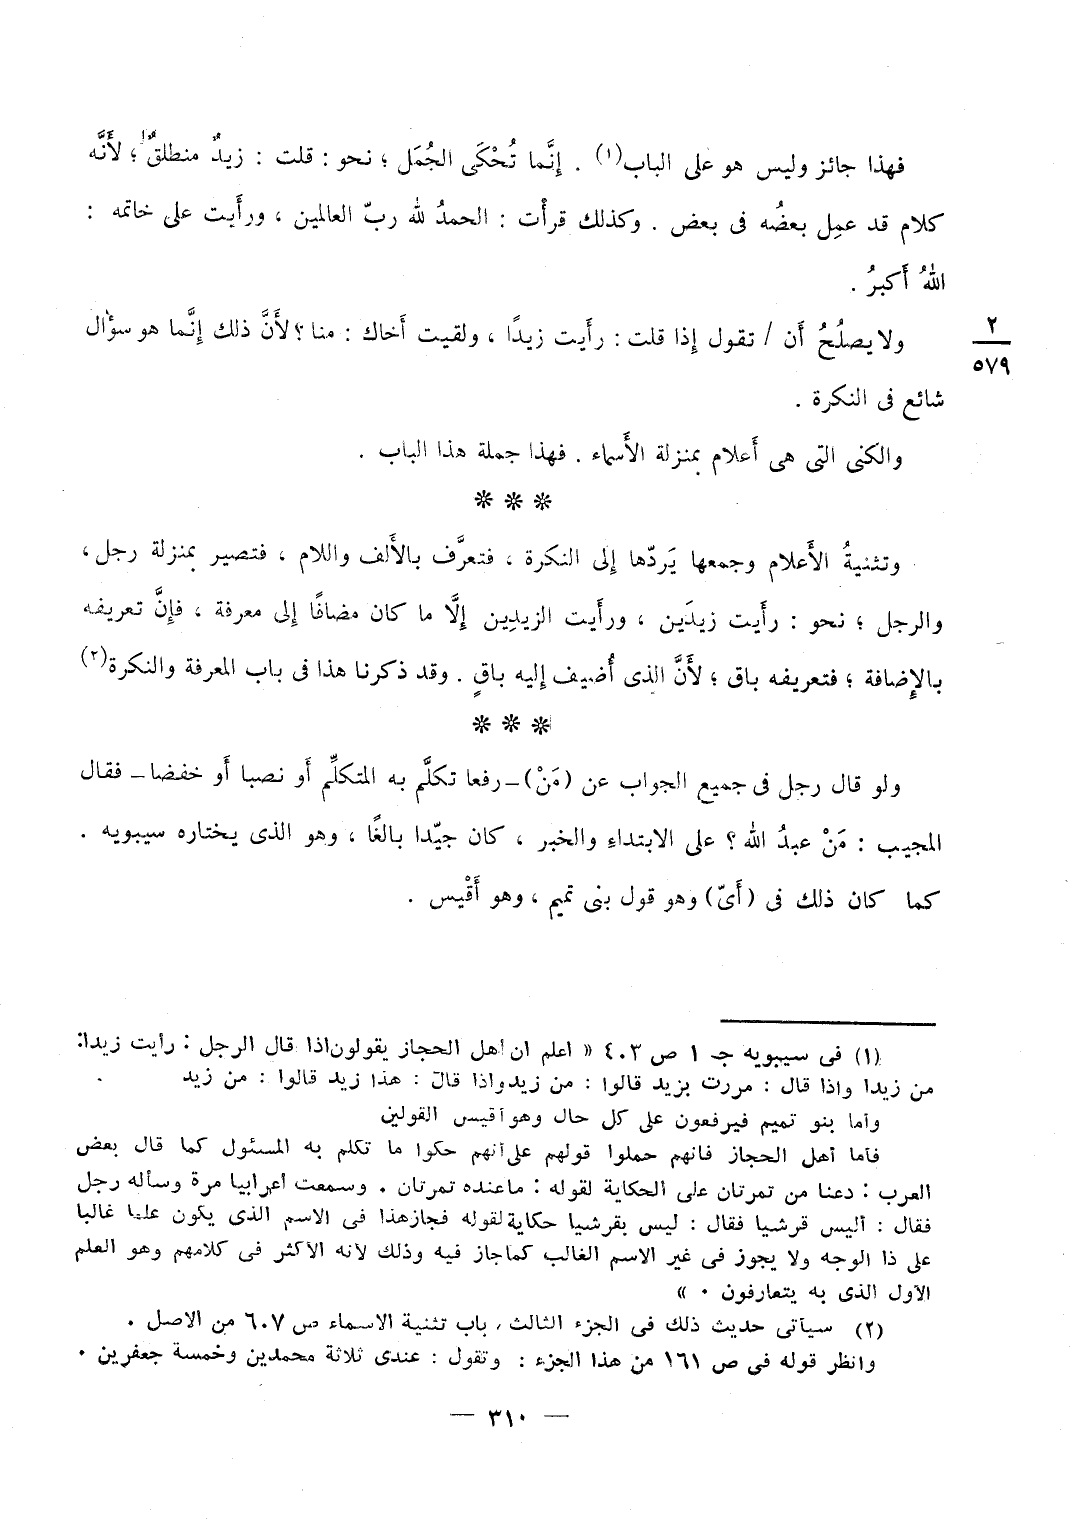 فهذا جائز وليس هو على الباب(١) . إِنَّما تُحْكَى الجُمَل ؛ نحو : قلت : زيدٌ منطلقٌ ؛ لأَنَّه
كلام قد عمِل بعضُه فى بعض . وكذلك قرأْت : الحمدُ لله ربّ العالمين ، ورأَيت على خاتمه :
اللهُ أَكبرُ .
ولا يصلُحُ أَن / تقول إِذا قلت : رأَيت زيدًا ، ولقيت أَخاك : منا ؟ لأَنَّ ذلك إِنَّما هو سؤال
٢
٥٧٩
شائع فى النكرة .
والكنى التى هى أَعلام بمنزلة الأَسماء . فهذا جملة هذا الباب .
* * *
وتثنيةُ الأَعلام وجمعها يَردّها إِلى النكرة ، فتعرَّف بالأَلف واللام ، فتصير بمنزلة رجل ،
والرجل ؛ نحو : رأَيت زيدَين ، ورأَيت الزيدِين إِلَّا ما كان مضافًا إِلى معرفة ، فإِنَّ تعريفه
بالإِضافة ؛ فتعريفه باق ؛ لأَنَّ الذى أُضيف إِليه باقٍ . وقد ذكرنا هذا فى باب المعرفة والنكرة(٢)
* * *
ولو قال رجل فى جميع الجواب عن (مَنْ) ــ رفعا تكلَّم به المتكلِّم أَو نصبا أَو خفضا ــ فقال
المجيب : مَنْ عبدُ الله ؟ على الابتداءِ والخبر ، كان جيّدا بالغًا ، وهو الذى يختاره سيبويه .
كما كان ذلك فى (أَىّ) وهو قول بنى تميم ، وهو أَقْيس .
(١) فى سيبويه جـ ١ ص ٤٠٣ « اعلم ان أهل الحجاز يقولون اذا قال الرجل : رأيت زيدا :
من زيدا واذا قال : مررت بزيد قالوا : من زيد واذا قال : هذا زيد قالوا : من زيد
وأما بنو تميم فيرفعون على كل حال وهو أقيس القولين
فأما أهل الحجاز فانهم حملوا قولهم على أنهم حكوا ما تكلم به المسئول كما قال بعض
العرب : دعنا من تمرتان على الحكاية لقوله : ما عنده تمرتان . وسمعت أعرابيا مرة وسأله رجل
فقال : أليس قرشيا فقال : ليس بقرشيا حكاية لقوله فجاز هذا فى الاسم الذى يكون علما غالبا
على ذا الوجه ولا يجوز فى غير الاسم الغالب كما جاز فيه وذلك لأنه الأكثر فى كلامهم وهو العلم
الأول الذى به يتعارفون . »
(٢) سيأتى حديث ذلك فى الجزء الثالث ، باب تثنية الاسماء ص ٦٠٧ من الاصل .
وانظر قوله فى ص ١٦١ من هذا الجزء : وتقول : عندى ثلاثة محمدين وخمسة جعفرين .
— ٣١٠ —